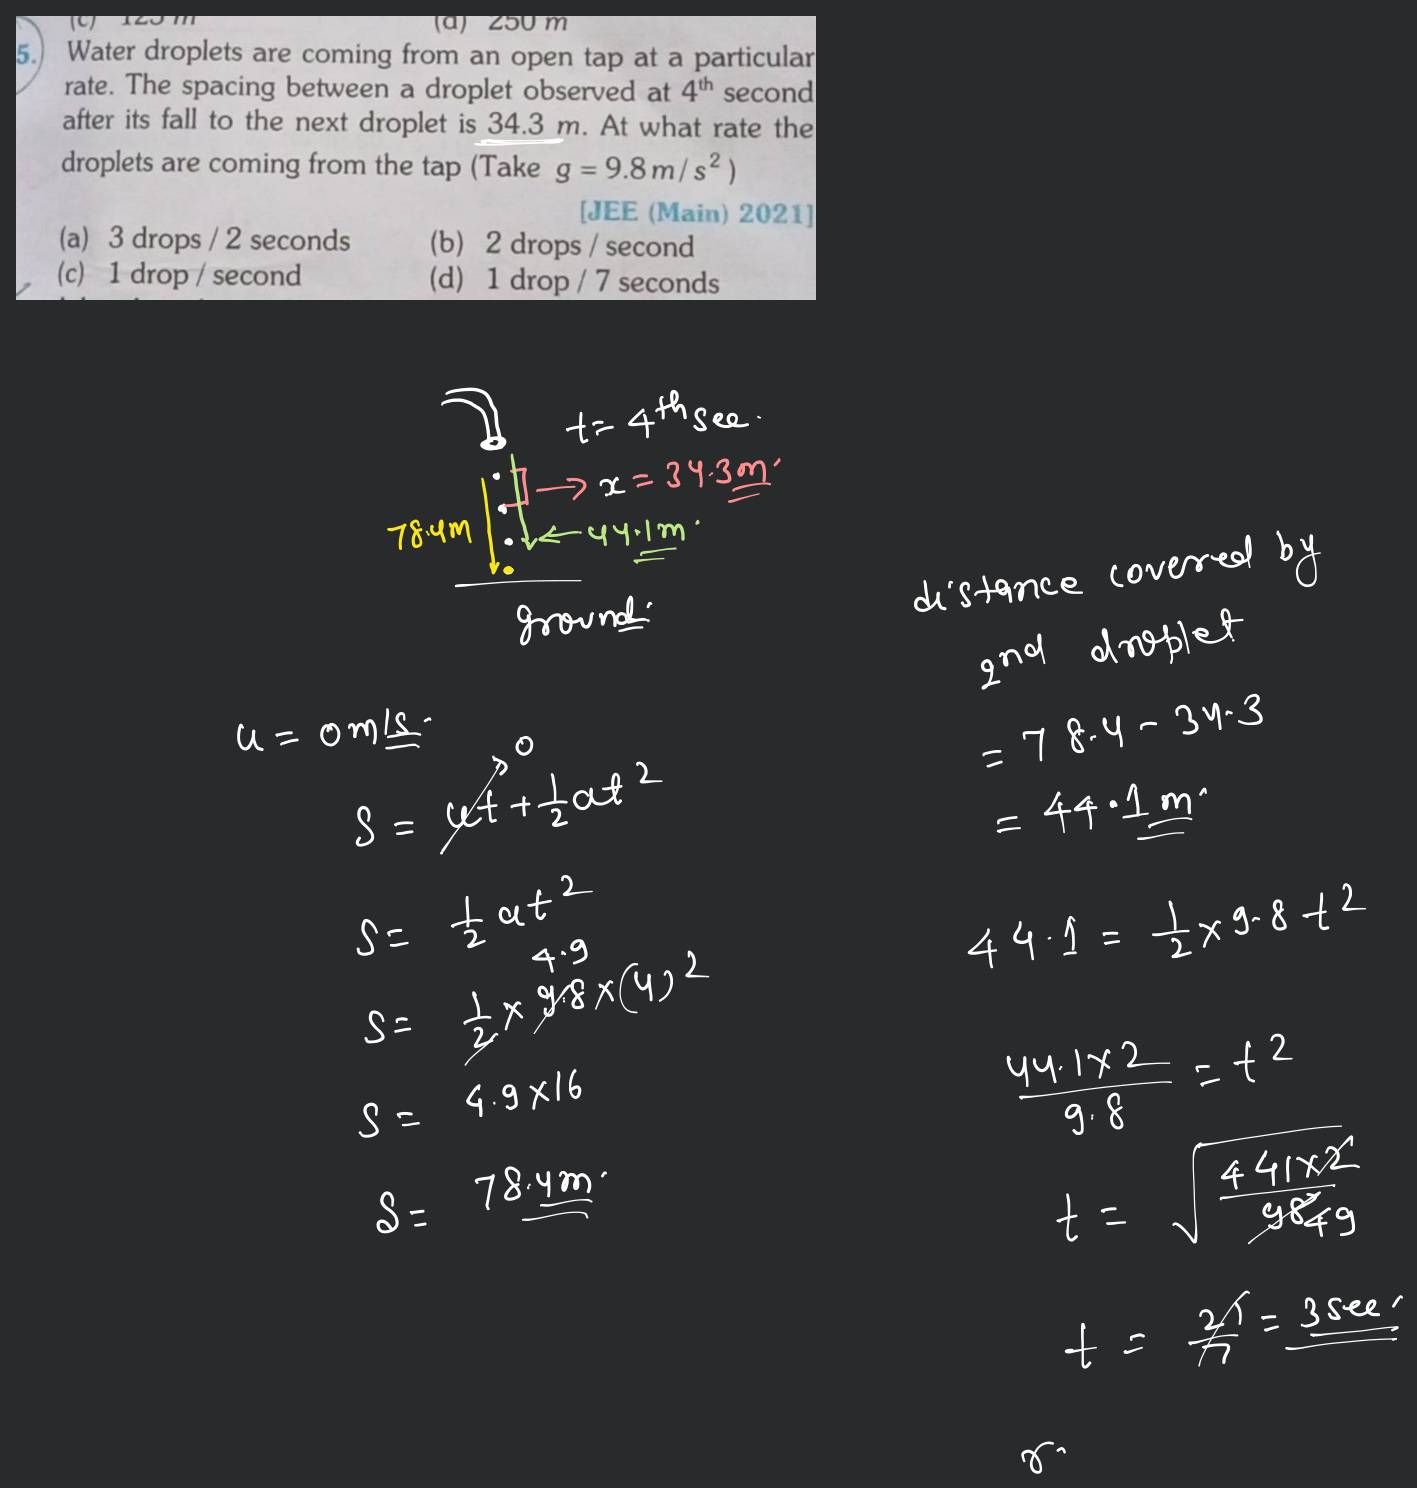 (c) 125 m (d) 250 m
5. Water droplets are coming from an open tap at a particular
rate. The spacing between a droplet observed at 4th second
after its fall to the next droplet is 34.3 m. At what rate the
droplets are coming from the tap (Take g = 9.8 m/s²)
[JEE (Main) 2021]
(a) 3 drops / 2 seconds (b) 2 drops / second
(c) 1 drop / second (d) 1 drop / 7 seconds
t = 4th sec.
x = 34.3m.
78.4m
44.1m.
ground.
u = 0 m/s.
0
S = ut + 1/2 at²
S = 1/2 at²
4.9
S = 1/2 × 9.8 × (4)²
S = 4.9 × 16
S = 78.4m.
distance covered by
2nd droplet
= 78.4 - 34.3
= 44.1 m.
44.1 = 1/2 × 9.8 t²
44.1×2 / 9.8 = t²
t = √441×2 / 98 49
t = 21/7 = 3 sec.